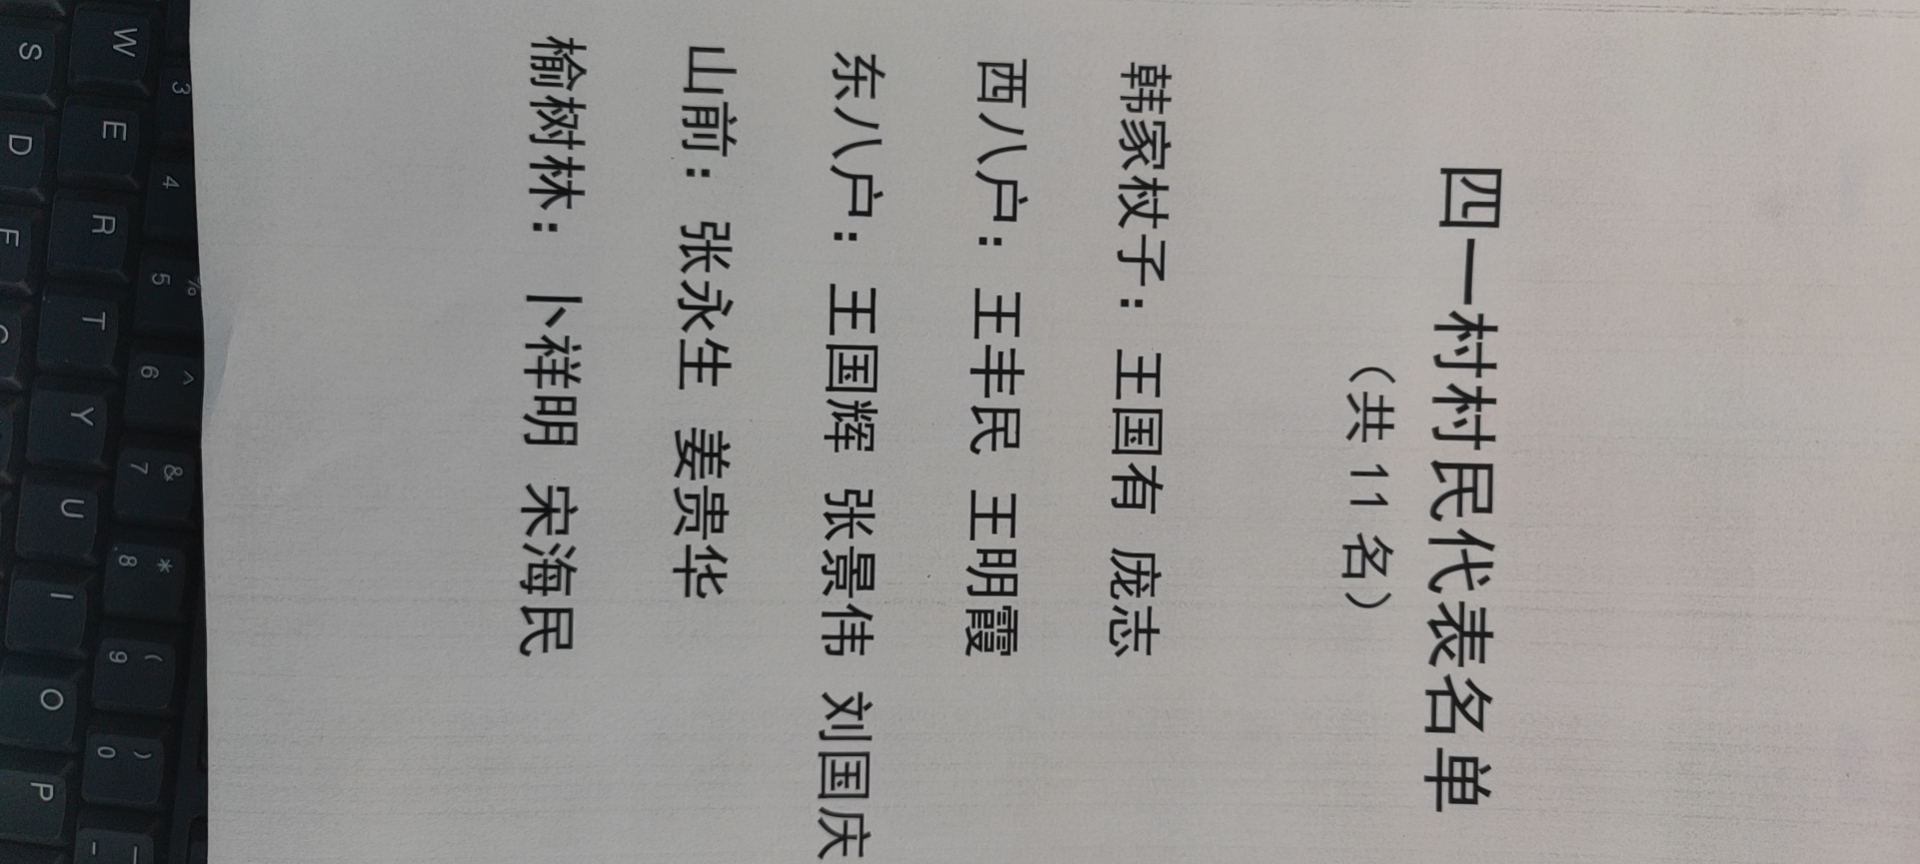 四一村村民代表名单
（共 11 名）
韩家杖子：王国有 庞志
西八户：王丰民 王明霞
东八户：王国辉 张景伟 刘国庆
山前：张永生 姜贵华
榆树林：卜祥明 宋海民
3 4 % 5 ^ 6 & 7 * 8 ( 9 ) 0 _ -
W E R T Y U I O P
S D F G